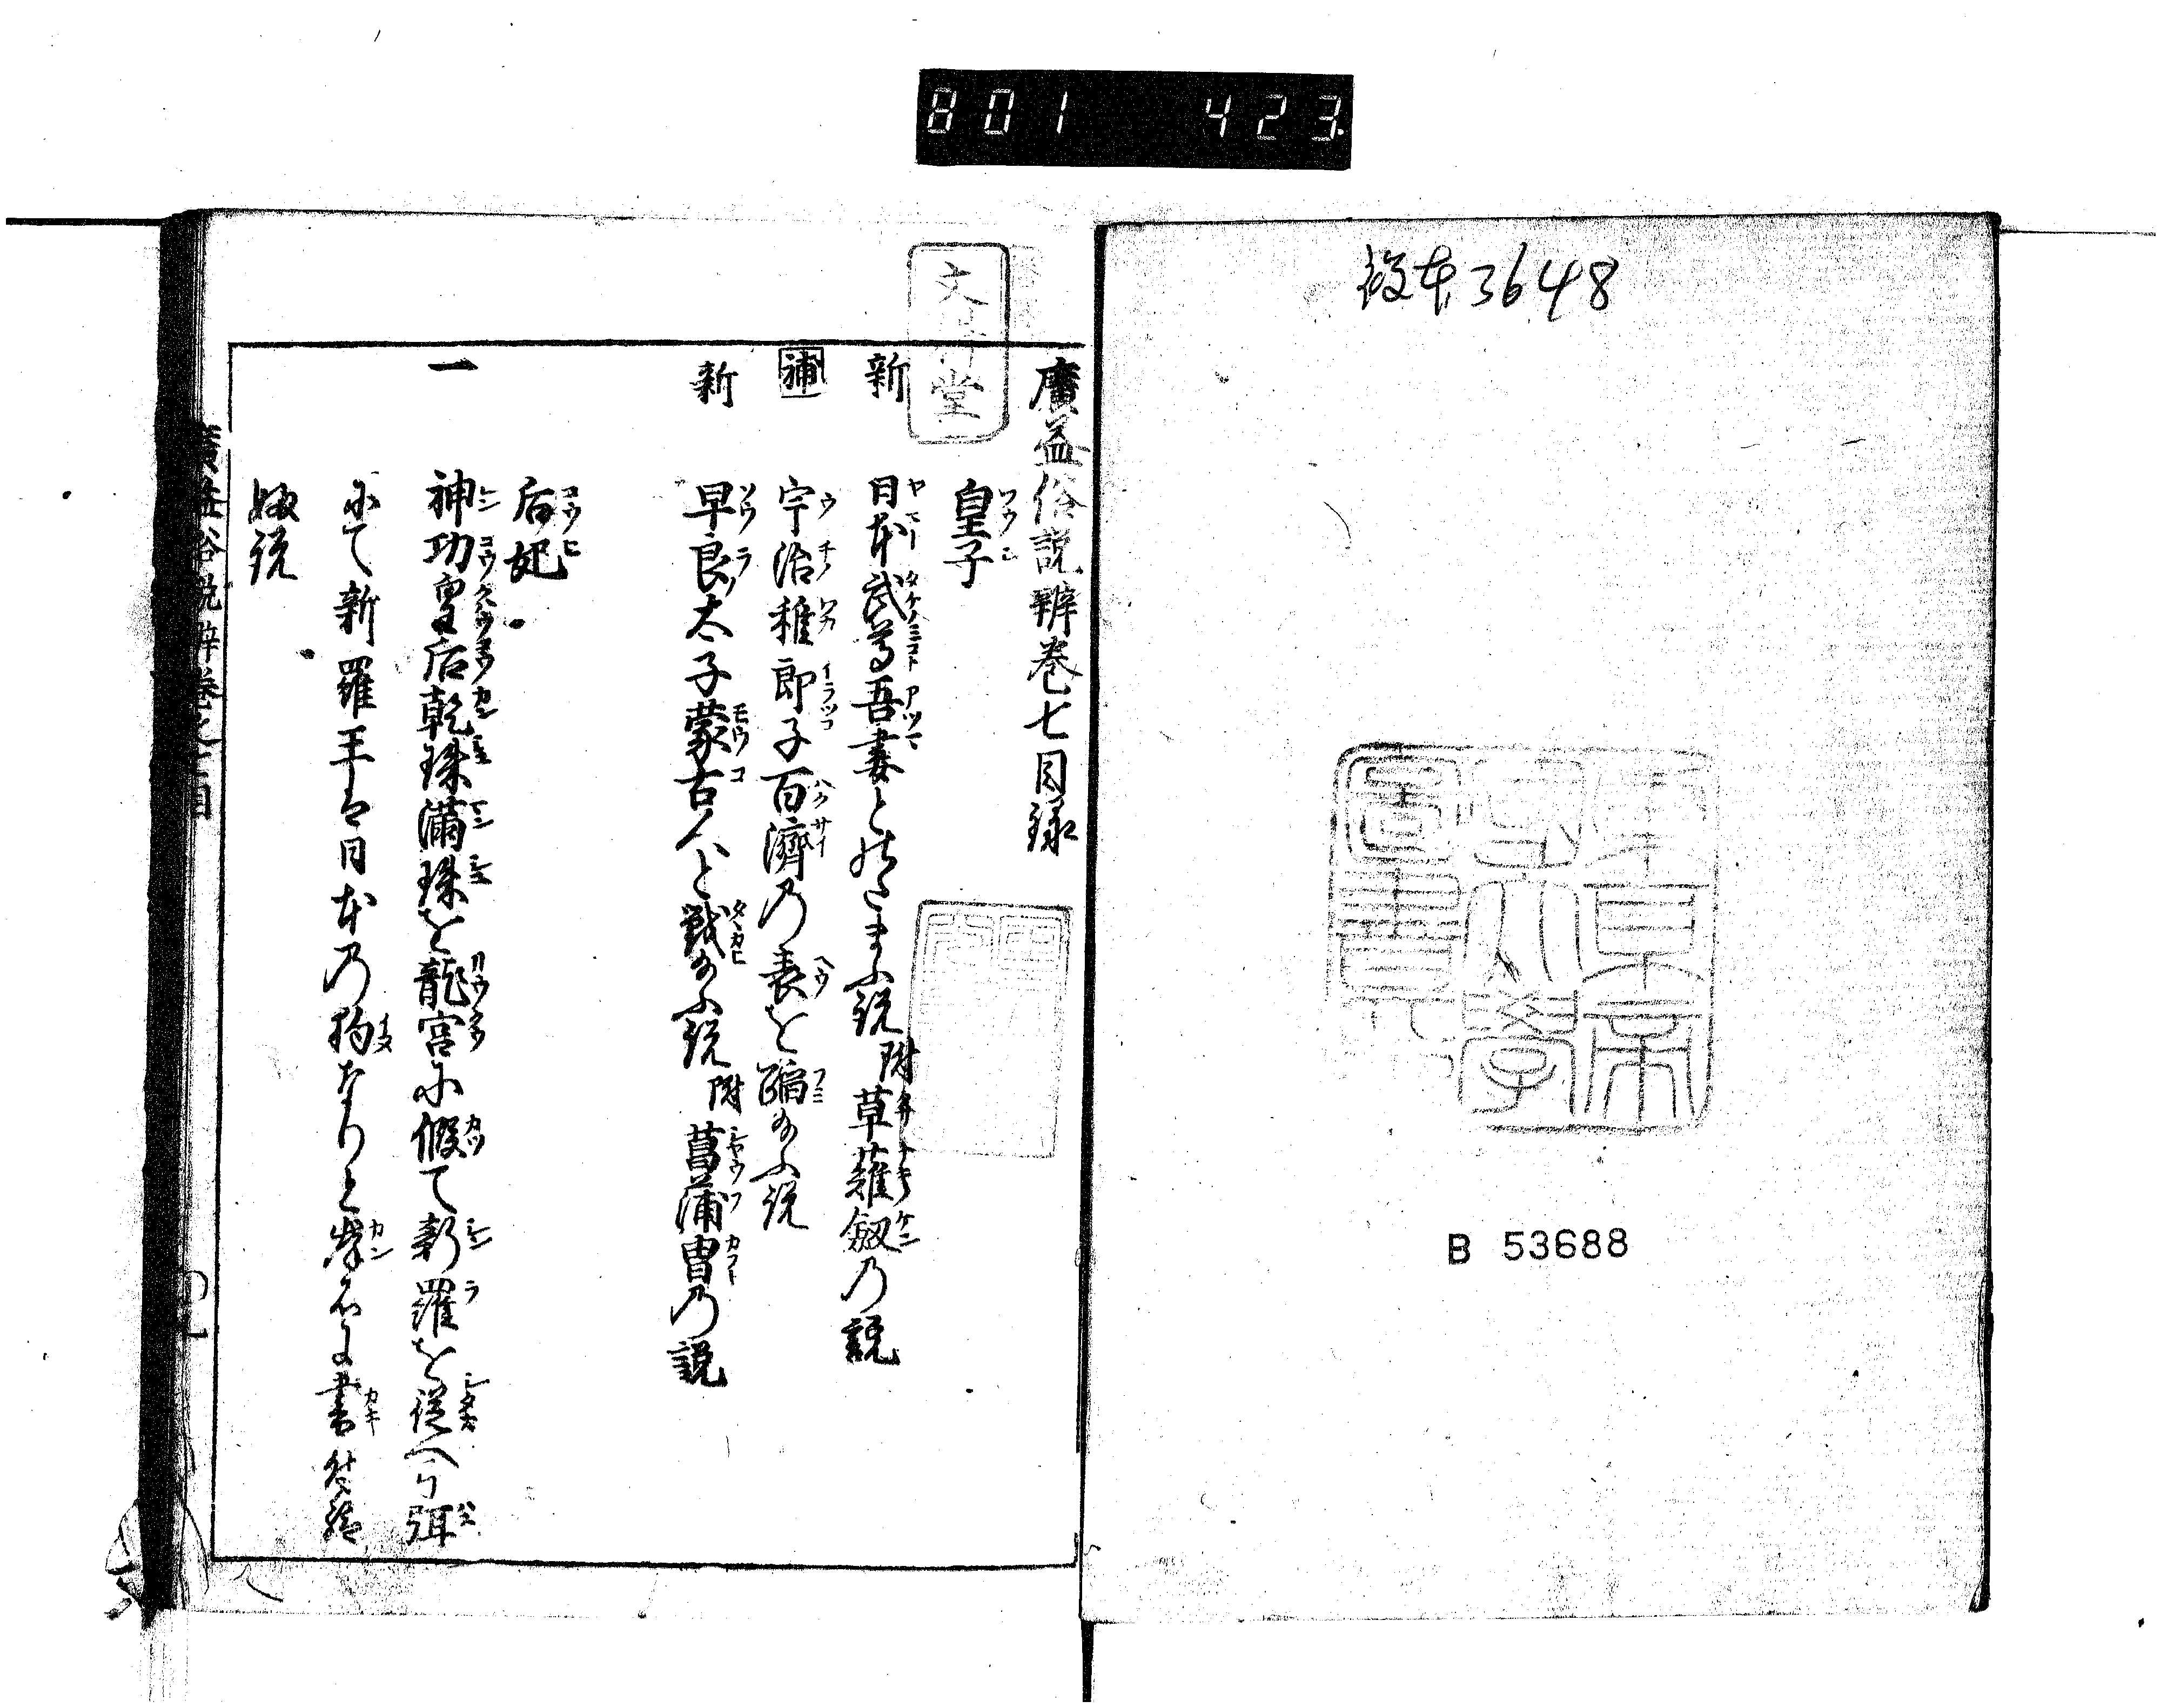 801 423
複本3648
B 53688
廣益俗説辨巻七目録
皇子
新 日本武尊吾妻とのたまふ説 附草薙劔乃説
補 宇治稚郎子百濟乃表を
新 早良太子蒙古人と戰給ふ説 附菖蒲冑乃説
后妃
一 神功皇后乾珠滿珠を龍宮に假て新羅を從へ弭
にて新羅王は日本乃狗なりと石に書付給
ふ説
文 堂